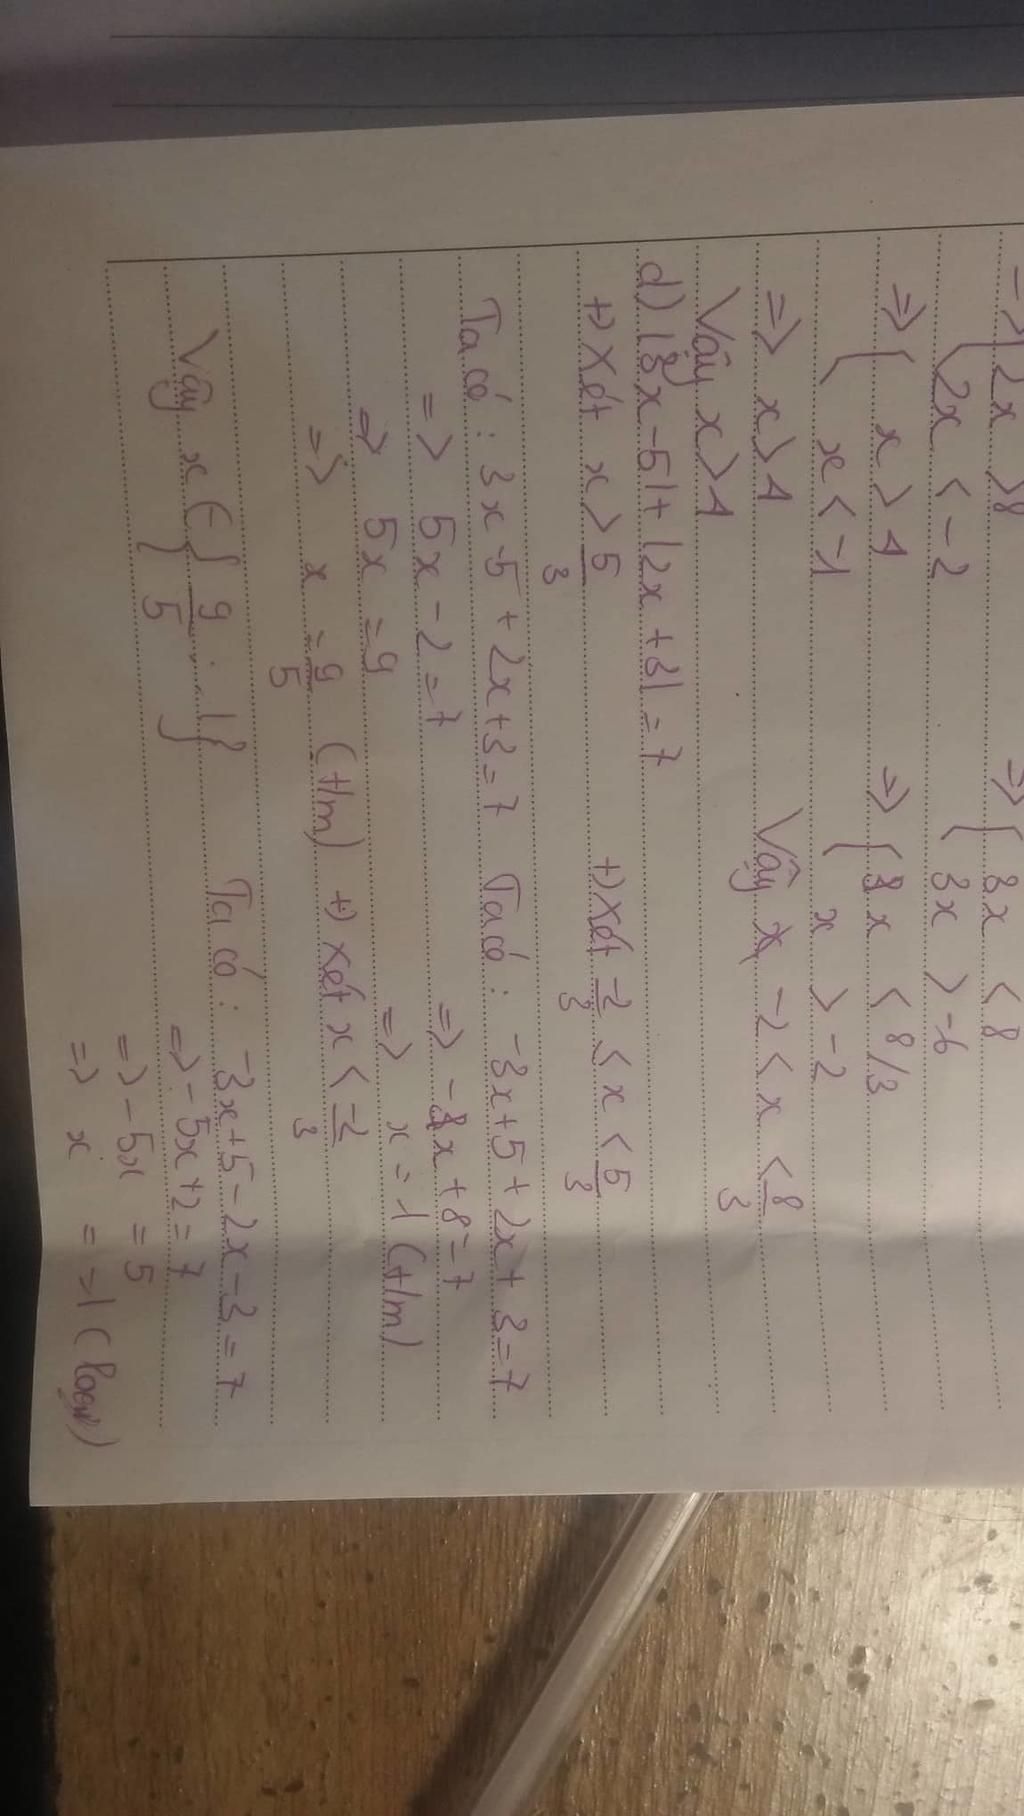 => { 2x > 8
2x < -2
=> { x > 4
x < -1
=> x > 4
Vậy x > 4
=> { 3x < 8
3x > -6
=> { x < 8/3
x > -2
Vậy -2 < x < 8/3
d) |3x - 5| + |2x + 3| = 7
+) Xét x > 5/3
Ta có : 3x - 5 + 2x + 3 = 7
=> 5x - 2 = 7
=> 5x = 9
=> x = 9/5 (t/m)
+) Xét -2/3 ≤ x < 5/3
Ta có : -3x + 5 + 2x + 3 = 7
=> -x + 8 = 7
=> x = 1 (t/m)
+) Xét x < -2/3
Ta có : -3x + 5 - 2x - 3 = 7
=> -5x + 2 = 7
=> -5x = 5
=> x = -1 (loại)
Vậy x ∈ { 9/5 ; 1 }